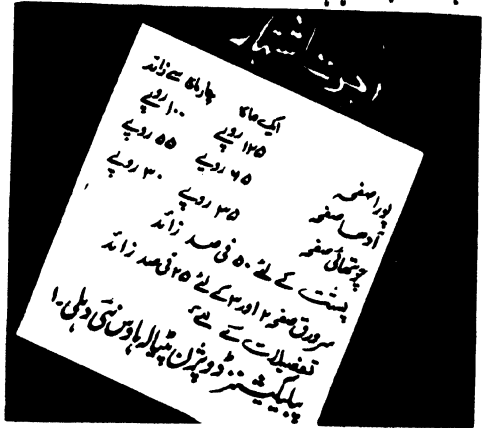 اجرت اشتہار
ایک ماہ کا چار ماہ سے زائد
پورا صفحہ ۱۲۵ روپے ۱۰۰ روپے
آدھا صفحہ ۶۵ روپے ۵۵ روپے
چوتھائی صفحہ ۳۵ روپے ۳۰ روپے
پشت کے لئے ۵۰ فی صد زائد
سرورق صفحہ ۲ اور ۳ کے لئے ۲۵ فی صد زائد
تفصیلات کے لیے
پبلیکیشنز ڈویژن پٹیالہ ہاؤس نئی دہلی۔۱